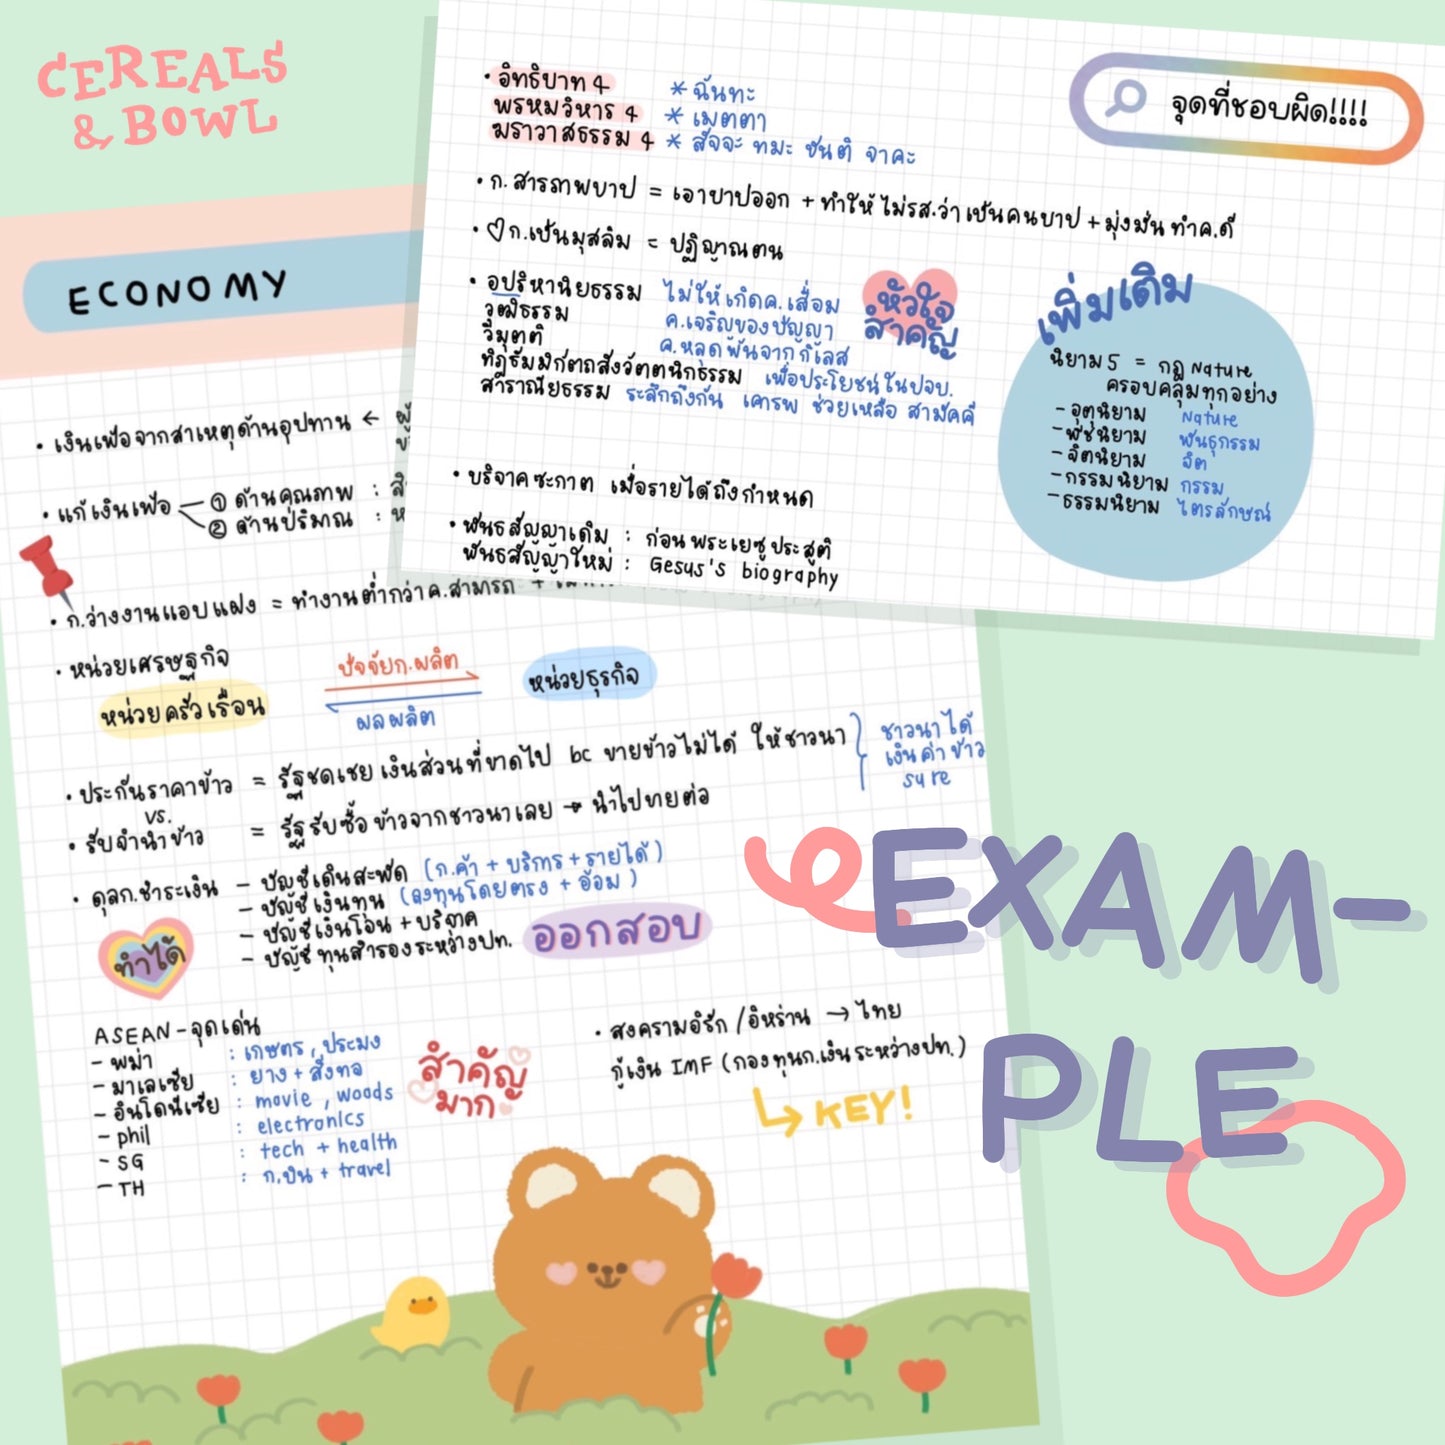 CEREALS
& BOWL
จุดที่ชอบผิด!!!!
• อิทธิบาท 4 * ฉันทะ
พรหมวิหาร 4 * เมตตา
ฆราวาสธรรม 4 * สัจจะ ทมะ ขันติ จาคะ
• ก.สารภาพบาป = เอาบาปออก + ทำให้ไม่รส.ว่าเป็นคนบาป + มุ่งมั่นทำค.ดี
• ♡ก.เป็นมุสลิม = ปฏิญาณตน
• อปริหานิยธรรม ไม่ให้เกิดค.เสื่อม
วุฒิธรรม ค.เจริญของปัญญา
วิมุตติ ค.หลุดพ้นจากกิเลส
ทิฏธัมมิกัตถสังวัตตนิกธรรม เพื่อประโยชน์ในปจบ.
สาราณียธรรม ระลึกถึงกัน เคารพ ช่วยเหลือ สามัคคี
หัวใจ
สำคัญ
• บริจาคซะกาต เมื่อรายได้ถึงกำหนด
• พันธสัญญาเดิม : ก่อนพระเยซูประสูติ
พันธสัญญาใหม่ : Gesus's biography
เพิ่มเติม
นิยาม 5 = กฎ Nature
ครอบคลุมทุกอย่าง
- อุตุนิยาม Nature
- พีชนิยาม พันธุกรรม
- จิตนิยาม จิต
- กรรมนิยาม กรรม
- ธรรมนิยาม ไตรลักษณ์
ECONOMY
• เงินเฟ้อจากสาเหตุด้านอุปทาน ←
• แก้เงินเฟ้อ ① ด้านคุณภาพ :
② ด้านปริมาณ :
• ก.ว่างงานแอบแฝง = ทำงานต่ำกว่าค.สามารถ +
• หน่วยเศรษฐกิจ
หน่วยครัวเรือน ปัจจัยก.ผลิต หน่วยธุรกิจ
ผลผลิต
• ประกันราคาข้าว = รัฐชดเชยเงินส่วนที่ขาดไป bc ขายข้าวไม่ได้ ให้ชาวนา
vs.
• รับจำนำข้าว = รัฐรับซื้อข้าวจากชาวนาเลย → นำไปขายต่อ
ชาวนาได้
เงินค่าข้าว
sure
• ดุลก.ชำระเงิน - บัญชีเดินสะพัด (ก.ค้า + บริการ + รายได้)
- บัญชีเงินทุน (ลงทุนโดยตรง + อ้อม)
- บัญชีเงินโอน + บริจาค
- บัญชีทุนสำรองระหว่างปท.
ออกสอบ
ทำได้
ASEAN - จุดเด่น
- พม่า : เกษตร, ประมง
- มาเลเซีย : ยาง + สิ่งทอ
- อินโดนีเซีย : movie, woods
- phil : electronics
- SG : tech + health
- TH : ก.บิน + travel
สำคัญ
มาก
• สงครามอิรัก/อิหร่าน → ไทย
กู้เงิน IMF (กองทุนก.เงินระหว่างปท.)
KEY!
EXAM-
PLE